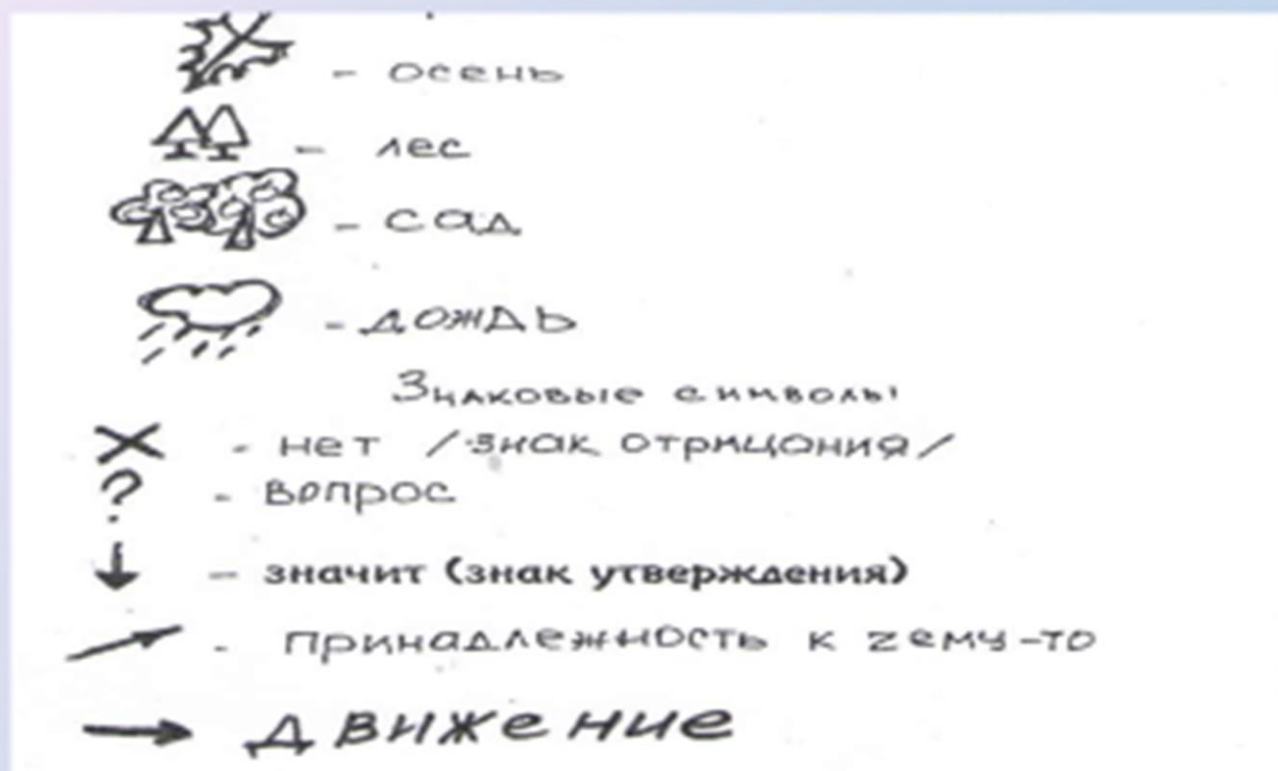 - осень
- лес
- сад
- дождь
Знаковые символы
- нет /знак отрицония/
? - вопрос
- значит (знак утверждения)
- принадлежность к чему-то
движение